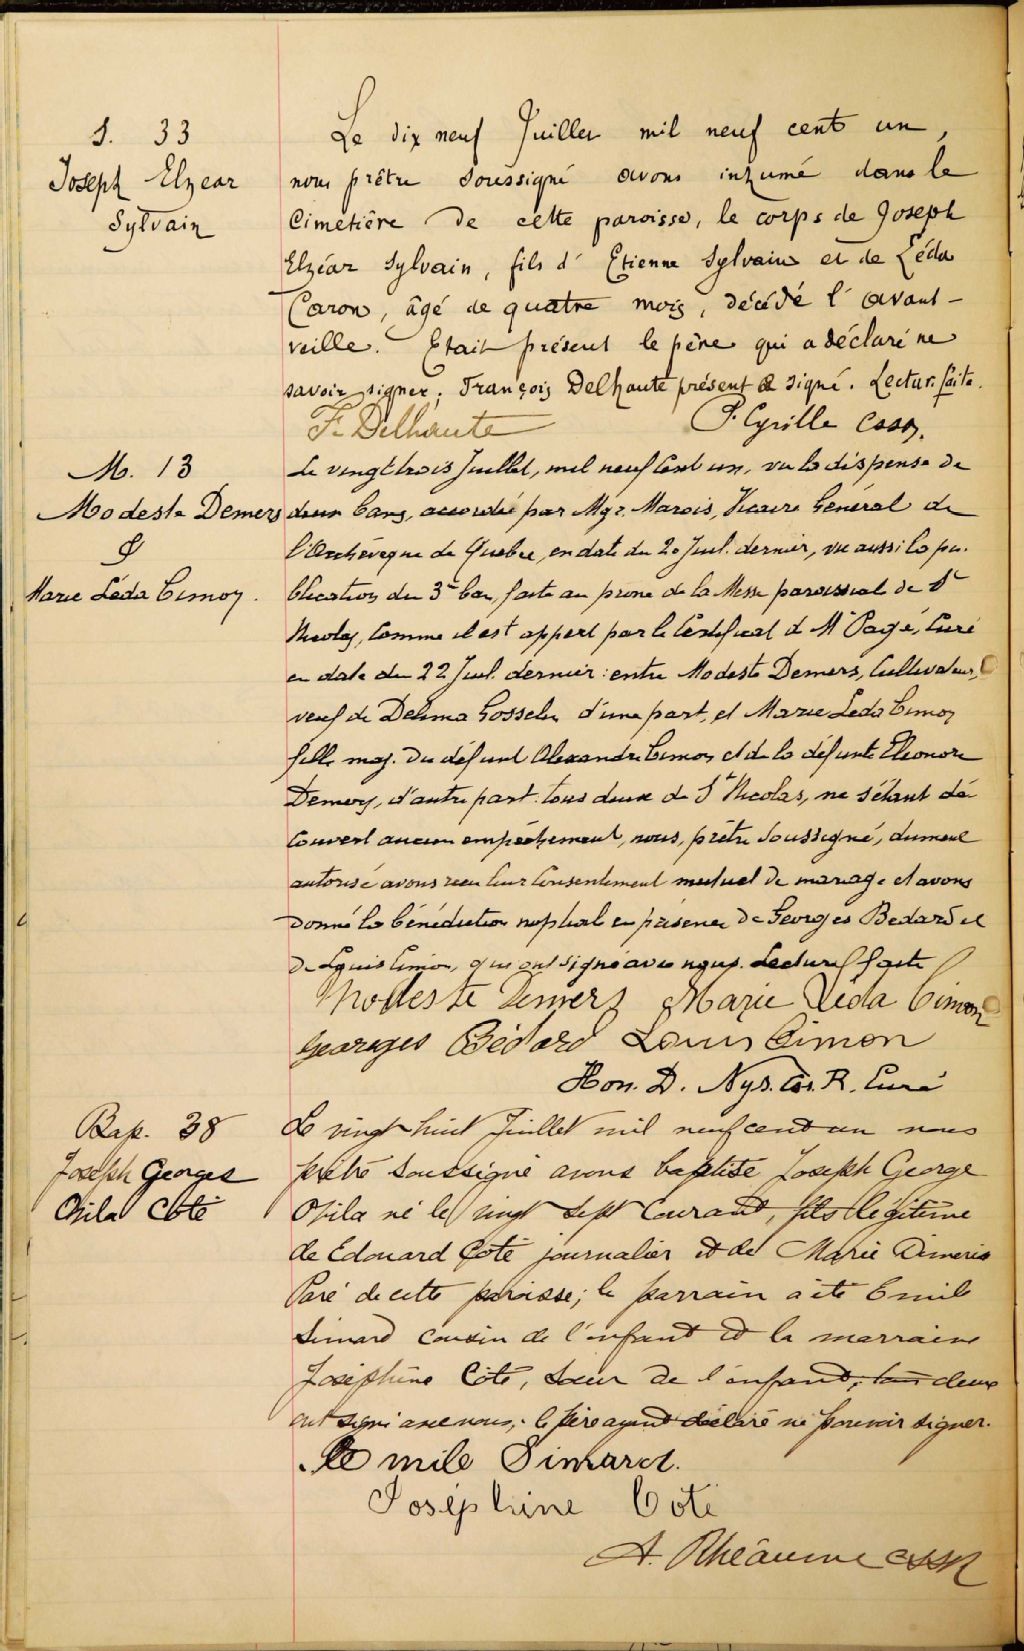 S. 33
Joseph Elzear
Sylvain
Le dix neuf Juillet mil neuf cent un,
nous prêtre soussigné avons inhumé dans le
Cimetière de cette paroisse, le corps de Joseph
Elzéar Sylvain, fils d'Etienne Sylvain et de Léda
Caron, âgé de quatre mois, décédé l'avant-
veille. Etait présent le père qui a déclaré ne
savoir signer; François Delhaute présent a signé. Lecture faite.
F. Delhaute P. Cyrille CSSR.
M. 13
Modeste Demers
&
Marie Léda Cimon.
Le vingt trois Juillet, mil neuf cent un, vu la dispense de
deux bans, accordée par Mgr. Marois, Vicaire Général de
l'Archevêque de Québec, en date du 20 Juil. dernier, vu aussi la pu-
blication du 3e ban, faite au prone de la Messe paroissial de St
Nicolas, comme il est appert par le certificat de Mr Pagé, Curé
en date du 22 Juil. dernier: entre Modeste Demers, Cultivateur,
veuf de Delima Gosselin d'une part, et Marie Léda Cimon
fille maj. du défunt Alexandre Cimon et de la défunte Eleonore
Demers, d'autre part. tous deux de St Nicolas, ne s'étant dé-
couvert aucun empêchement, nous, prêtre soussigné, dument
autorisé avons reçu leur consentement mutuel de mariage et avons
donné la bénédiction nuptial en présence de Georges Bedard et
de Louis Cimon, qui ont signé avec nous. Lecture faite
Modeste Demers Marie Léda Cimon
Georges Bédard Louis Cimon
Hon. D. Nys. CSS.R. Curé
Bap. 38
Joseph Georges
Ovila Coté
Le vingt huit Juillet mil neuf cent un nous
prêtre soussigné avons baptisé Joseph George
Ovila né le vingt sept courant, fils légitime
de Edouard Coté journalier et de Marie Dimerise
Paré de cette paroisse; le parrain a été Emile
Simard cousin de l'enfant et la marraine
Joséphine Coté, soeur de l'enfant, tous deux
ont signé avec nous, le père ayant déclaré ne pouvoir signer.
Emile Simard.
Joséphine Coté
A. Rhéaume CSSR